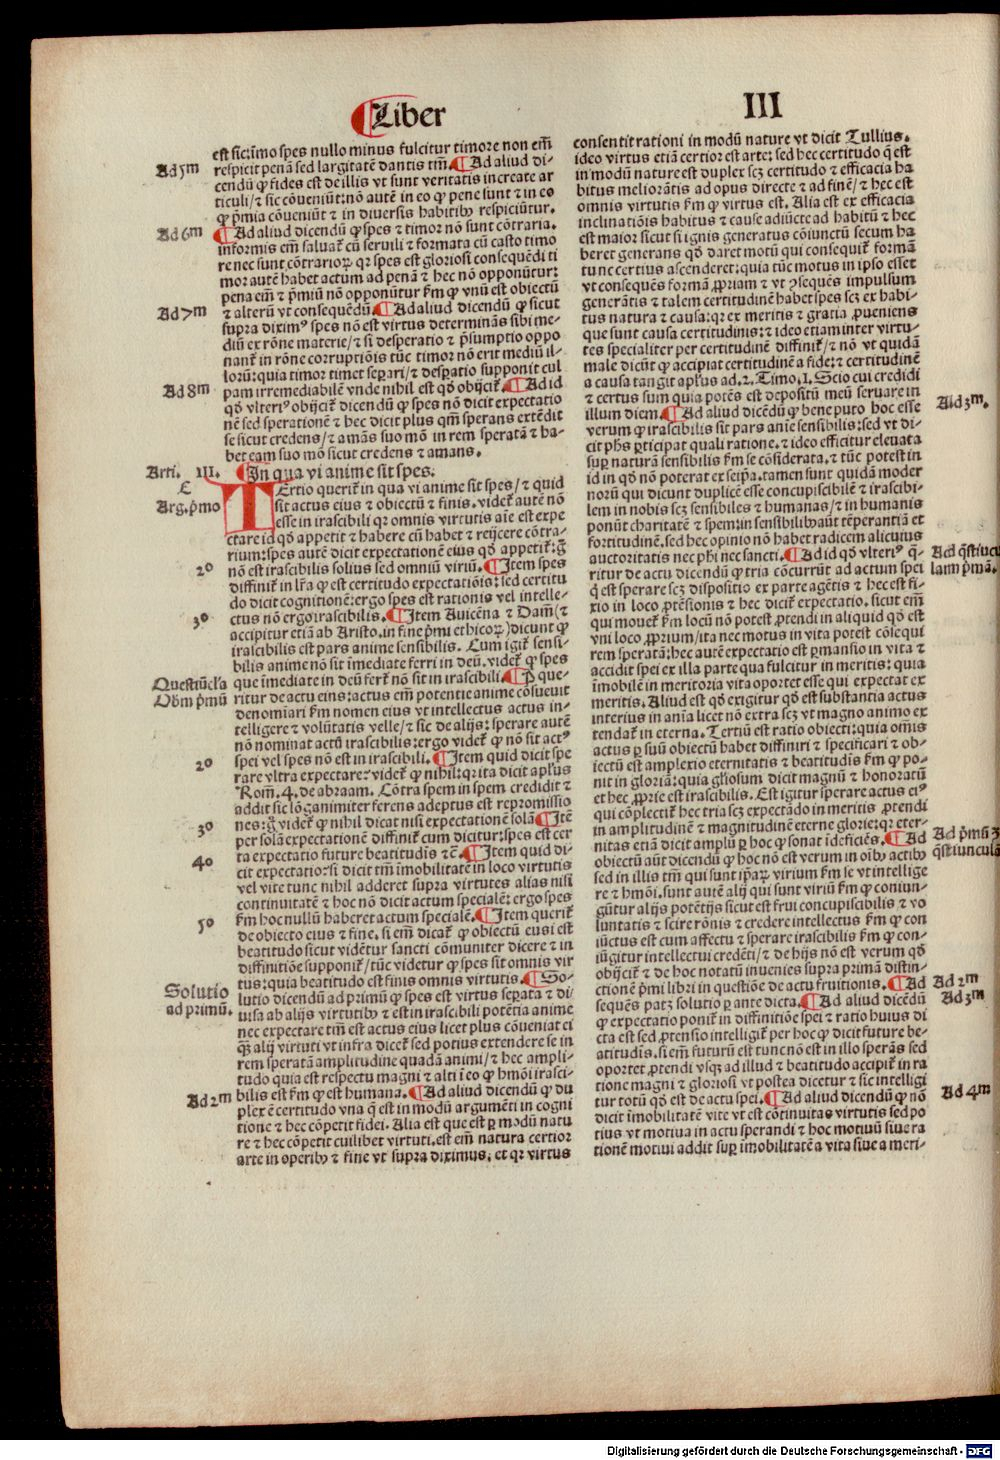 Liber
III
est sic: īmo spes nullo minus fulcitur timore non em̄
Ad 5m
respicit penā sed largitatē dantis tm̄. ¶ Ad aliud di-
cendū ꝙ fides est de illis vt sunt veritatis increate ar
ticuli/ ⁊ sic cōueniūt: nō autē in eo ꝙ pene sunt ⁊ in eo
ꝙ p̄mia cōveniūt ⁊ in diversis habitibꝰ respiciūtur.
Ad 6m
¶ Ad aliud dicendū ꝙ spes ⁊ timor nō sunt cōtraria.
informis em̄ saluat᷑ cū seruili ⁊ formata cū casto timo
re nec sunt cōtrarioꝝ qꝛ spes est gloriosi consequēdi ti
mor autē habet actum ad penā ⁊ hec nō opponūtur:
pena em̄ ⁊ p̄miū nō opponūtur s̄m ꝙ vnū est obiectū
Ad 7m
⁊ alterū vt consequēdū. ¶ Ad aliud dicendū ꝙ sicut
supra diximꝰ spes nō est virtus determinās sibi me-
diū ex rōne materie/ ⁊ si desperatio ⁊ p̄sumptio oppo
nant᷑ in rōne corruptiōis tūc timor nō erit mediū il-
lorū: quia timor timet separi/ ⁊ despatio supponit cul
Ad 8m
pam irremediabilē vnde nihil est qd̄ obijcit᷑. ¶ Ad id
qd̄ vlteriꝰ obijcit᷑ dicendū ꝙ spes nō dicit expectatio
nē sed sperationē ⁊ hec dicit plus qm̄ sperans extēdit
se sicut credens/ ⁊ amās suo mō in rem speratā ⁊ ha-
bet eam suo mō sicut credens ⁊ amans.
Arti. III.
¶ In qua vi anime sit spes.
Tertio querit᷑ in qua vi anime sit spes/ ⁊ quid
Arg. p̄mo
sit actus eius ⁊ obiectū ⁊ finis. videt᷑ autē nō
esse in irascibili qꝛ omnis virtutis aīe est expe
ctare id qd̄ appetit ⁊ habere cū habet ⁊ reijcere cōtra-
rium: spes autē dicit expectationē eius qd̄ appetit᷑: g̊
2o
nō est irascibilis solius sed omniū viriū. ¶ Item spes
diffinit᷑ in lr̄a ꝙ est certitudo expectatiōis: sed certitu
do dicit cognitionē: ergo spes est rationis vel intelle-
3o
ctus nō ergo irascibilis. ¶ Item Auicēna ⁊ Dam̄ (⁊
accipitur etiā ab Aristo. in fine p̄mi ethicoꝝ) dicunt ꝙ
irascibilis est pars anime sensibilis. Cum igit᷑ sensi-
bilis anime nō sit īmediate ferri in deū. videt᷑ ꝙ spes
Questiūcl'a
que īmediate in deū fert᷑ nō sit in irascibili. ¶ P̱ que-
Obm p̄mū
ritur de actu eius: actus em̄ potentie anime cōsueuit
denomīari s̄m nomen eius vt intellectus actus in-
telligere ⁊ volūtatis velle/ ⁊ sic de alijs: sperare autē
nō nominat actū irascibilis: ergo videt᷑ ꝙ nō sit actꝰ
2o
spei vel spes nō est in irascibili. ¶ Item quid dicit spe
rare vltra expectare? videt᷑ ꝙ nihil: qꝛ ita dicit apl'us
Rom̄. 4. de abraam. Cōtra spem in spem credidit ⁊
addit sic lōganimiter ferens adeptus est repromissio
3o
nes: g̊ videt᷑ ꝙ nihil dicat nisi expectationē solā ¶ Itē
per solā expectationē diffinit᷑ cum dicitur: spes est cer
4o
ta expectatio future beatitudīs ⁊c̄. ¶ Item quid di-
cit expectatio: si dicit tm̄ īmobilitatē in loco virtutis
vel vite tunc nihil adderet supra virtutes alias nisi
continuitatē ⁊ hoc nō dicit actum specialē: ergo spes
5o
s̄m hoc nullū haberet actum specialē. ¶ Item querit᷑
de obiecto eius ⁊ fine. si em̄ dicat᷑ ꝙ obiectū eusi est
beatitudo sicut vidētur sancti cōmuniter dicere ⁊ in
diffinitiōe supponit᷑/ tūc videtur ꝙ spes sit omnis vir
tus: quia beatitudo est finis omnis virtutis. ¶ So-
Solutio
ad primū.
lutio dicendū ad primū ꝙ spes est virtus sep̱ata ⁊ di
uisa ab alijs virtutibꝰ ⁊ est in irascibili potētia anime
nec expectare tm̄ est actus eius licet plus cōueniat ei
qꝫ alij virtuti vt infra dicet᷑ sed potius extendere se in
rem speratā amplitudine quadā animi/ ⁊ hec ampli-
tudo quia est respectu magni ⁊ alti ī eo ꝙ hmōi irasci-
Ad 2m
bilis est s̄m ꝙ est humana. ¶ Ad aliud dicendū ꝙ du
plex ē certitudo vna q̄ est in modū argumēti in cogni
tione ⁊ hec cōpetit fidei. Alia est que est p̱ modū natu
re ⁊ hec cōpetit cuilibet virtuti. est em̄ natura certior
arte in operibꝰ ⁊ fine vt supra diximus. et qꝛ virtus
consentit rationi in modū nature vt dicit Tullius.
ideo virtus etiā certior est arte: sed hec certitudo q̄ est
in modū nature est duplex scꝫ certitudo ⁊ efficacia ha
bitus melioratīs ad opus directe ⁊ ad finē/ ⁊ hec est
omnis virtutis s̄m ꝙ virtus est. Alia est ex efficacia
inclinatiōis habitus ⁊ cause adiūcte ad habitū ⁊ hec
est maior sicut si ignis generatus cōiunctū secum ha
beret generans qd̄ daret motū qui consequit᷑ formā
tunc certius ascenderet: quia tūc motus in ipso esset
vt consequēs formā ꝓpriam ⁊ vt ꝯsequēs impulsum
generātis ⁊ talem certitudinē habet spes scꝫ ex habi-
tus natura ⁊ causa: qꝛ ex meritis ⁊ gratia ꝓueniens
que sunt causa certitudinis: ⁊ ideo etiam inter virtu-
tes specialiter per certitudinē diffinit᷑/ ⁊ nō vt quidā
male dicūt ꝙ accipiat certitudinē a fide: ⁊ certitudinē
a causa tangit apl'us ad. 2. Timo. 1. Scio cui credidi
⁊ certus sum quia potēs est depositū meū seruare in
Ad 3m.
illum diem. ¶ Ad aliud dicēdū ꝙ bene puto hoc esse
verum ꝙ irascibilis sit pars anīe sensibilis: sed vt di-
cit ph̄s p̱ticipat quali ratione. ⁊ ideo efficitur eleuata
sup̱ naturā sensibilis s̄m se cōsiderata. ⁊ tūc potest in
id in qd̄ nō poterat ex seip̄a. tamen sunt quidā moder
norū qui dicunt duplicē esse concupiscibilē ⁊ irascibi-
lem in nobis scꝫ sensibiles ⁊ humanas/ ⁊ in humanis
ponūt charitatē ⁊ spem: in sensibilibꝰ aūt tēperantiā et
fortitudinē. sed hec opinio nō habet radicem alicuius
Ad q̄stiūcu
auctoritatis nec ph̄i nec sancti. ¶ Ad id qd̄ vlteriꝰ q̄-
lam p̄mā.
ritur de actu dicendū ꝙ tria cōcurrūt ad actum spei
q̄ est sperare scꝫ dispositio ex parte agētis ⁊ hec est fi-
xio in loco ꝓtēsionis ⁊ hec dicit᷑ expectatio. sicut em̄
qui mouet᷑ s̄m locū nō potest ꝓtendi in aliquid qd̄ est
vni loco ꝓprium/ ita nec motus in vita potest cōsequi
rem speratā: hec autē expectatio est p̱mansio in vita ⁊
accidit spei ex illa parte qua fulcitur in meritis: quia
īmobilē in meritoria vita oportet esse qui expectat ex
meritis. Aliud est qd̄ exigitur qd̄ est substantia actus
interius in anīa licet nō extra scꝫ vt magno animo ex
tendat᷑ in eterna. Tertiū est ratio obiecti: quia om̄is
actus p̱ suū obiectū habet diffiniri ⁊ specificari ⁊ ob-
iectū est amplexio eternitatis ⁊ beatitudīs s̄m ꝙ po-
nit in gloriā: quia gl'iosum dicit magnū ⁊ honoratū
et hec ꝓprīe est irascibilis. Est igitur sperare actus eiꝰ
qui cōplectit᷑ hec tria scꝫ expectādo in meritis ꝓtendi
in amplitudinē ⁊ magnitudinē eterne glorie: qꝛ eter-
Ad p̄mū 3
nitas etiā dicit amplū p̱ hoc ꝙ sonat īdeficiēs. ¶ Ad
q̄stiunculā
obiectū aūt dicendū ꝙ hoc nō est verum in oībꝰ actibꝰ
sed in illis tm̄ qui sunt ip̄aꝝ virium s̄m se vt intellige
re ⁊ hmōi. sunt autē alij qui sunt viriū s̄m ꝙ coniun-
gūtur alijs potētijs sicut est frui concupiscibilis ⁊ vo
luntatis ⁊ scire rōnis ⁊ credere intellectus s̄m ꝙ con
iūctus est cum affectu ⁊ sperare irascibilis s̄m ꝙ con-
iūgitur intellectui credēti/ ⁊ de hijs nō est verum qd̄
obijcit᷑ ⁊ de hoc notatū inuenies supra primā distin-
Ad 2m
ctionē p̄mi libri in questiōe de actu fruitionis. ¶ Ad
Ad 3m
sequēs patꝫ solutio p̱ ante dicta. ¶ Ad aliud dicēdū
ꝙ expectatio ponit᷑ in diffinitiōe spei ⁊ ratio huius di
cta est sed ꝓtensio intelligit᷑ per hoc ꝙ dicit future be-
atitudīs. si em̄ futurū est tunc nō est in illo sperās sed
oportet ꝓtendi vsqꝫ ad illud ⁊ beatitudo accipit᷑ in ra
tione magni ⁊ gloriosi vt postea dicetur ⁊ sic intelligi
Ad 4m
tur totū qd̄ est de actu spei. ¶ Ad aliud dicendū ꝙ nō
dicit īmobilitatē vite vt est cōtinuitas virtutis sed po
tius vt motiua in actu sperandi ⁊ hoc motiuū siue ra
tionē motiui addit sup̱ imobilitatē a vita siue a meri-
Digitalisierung gefördert durch die Deutsche Forschungsgemeinschaft - DFG